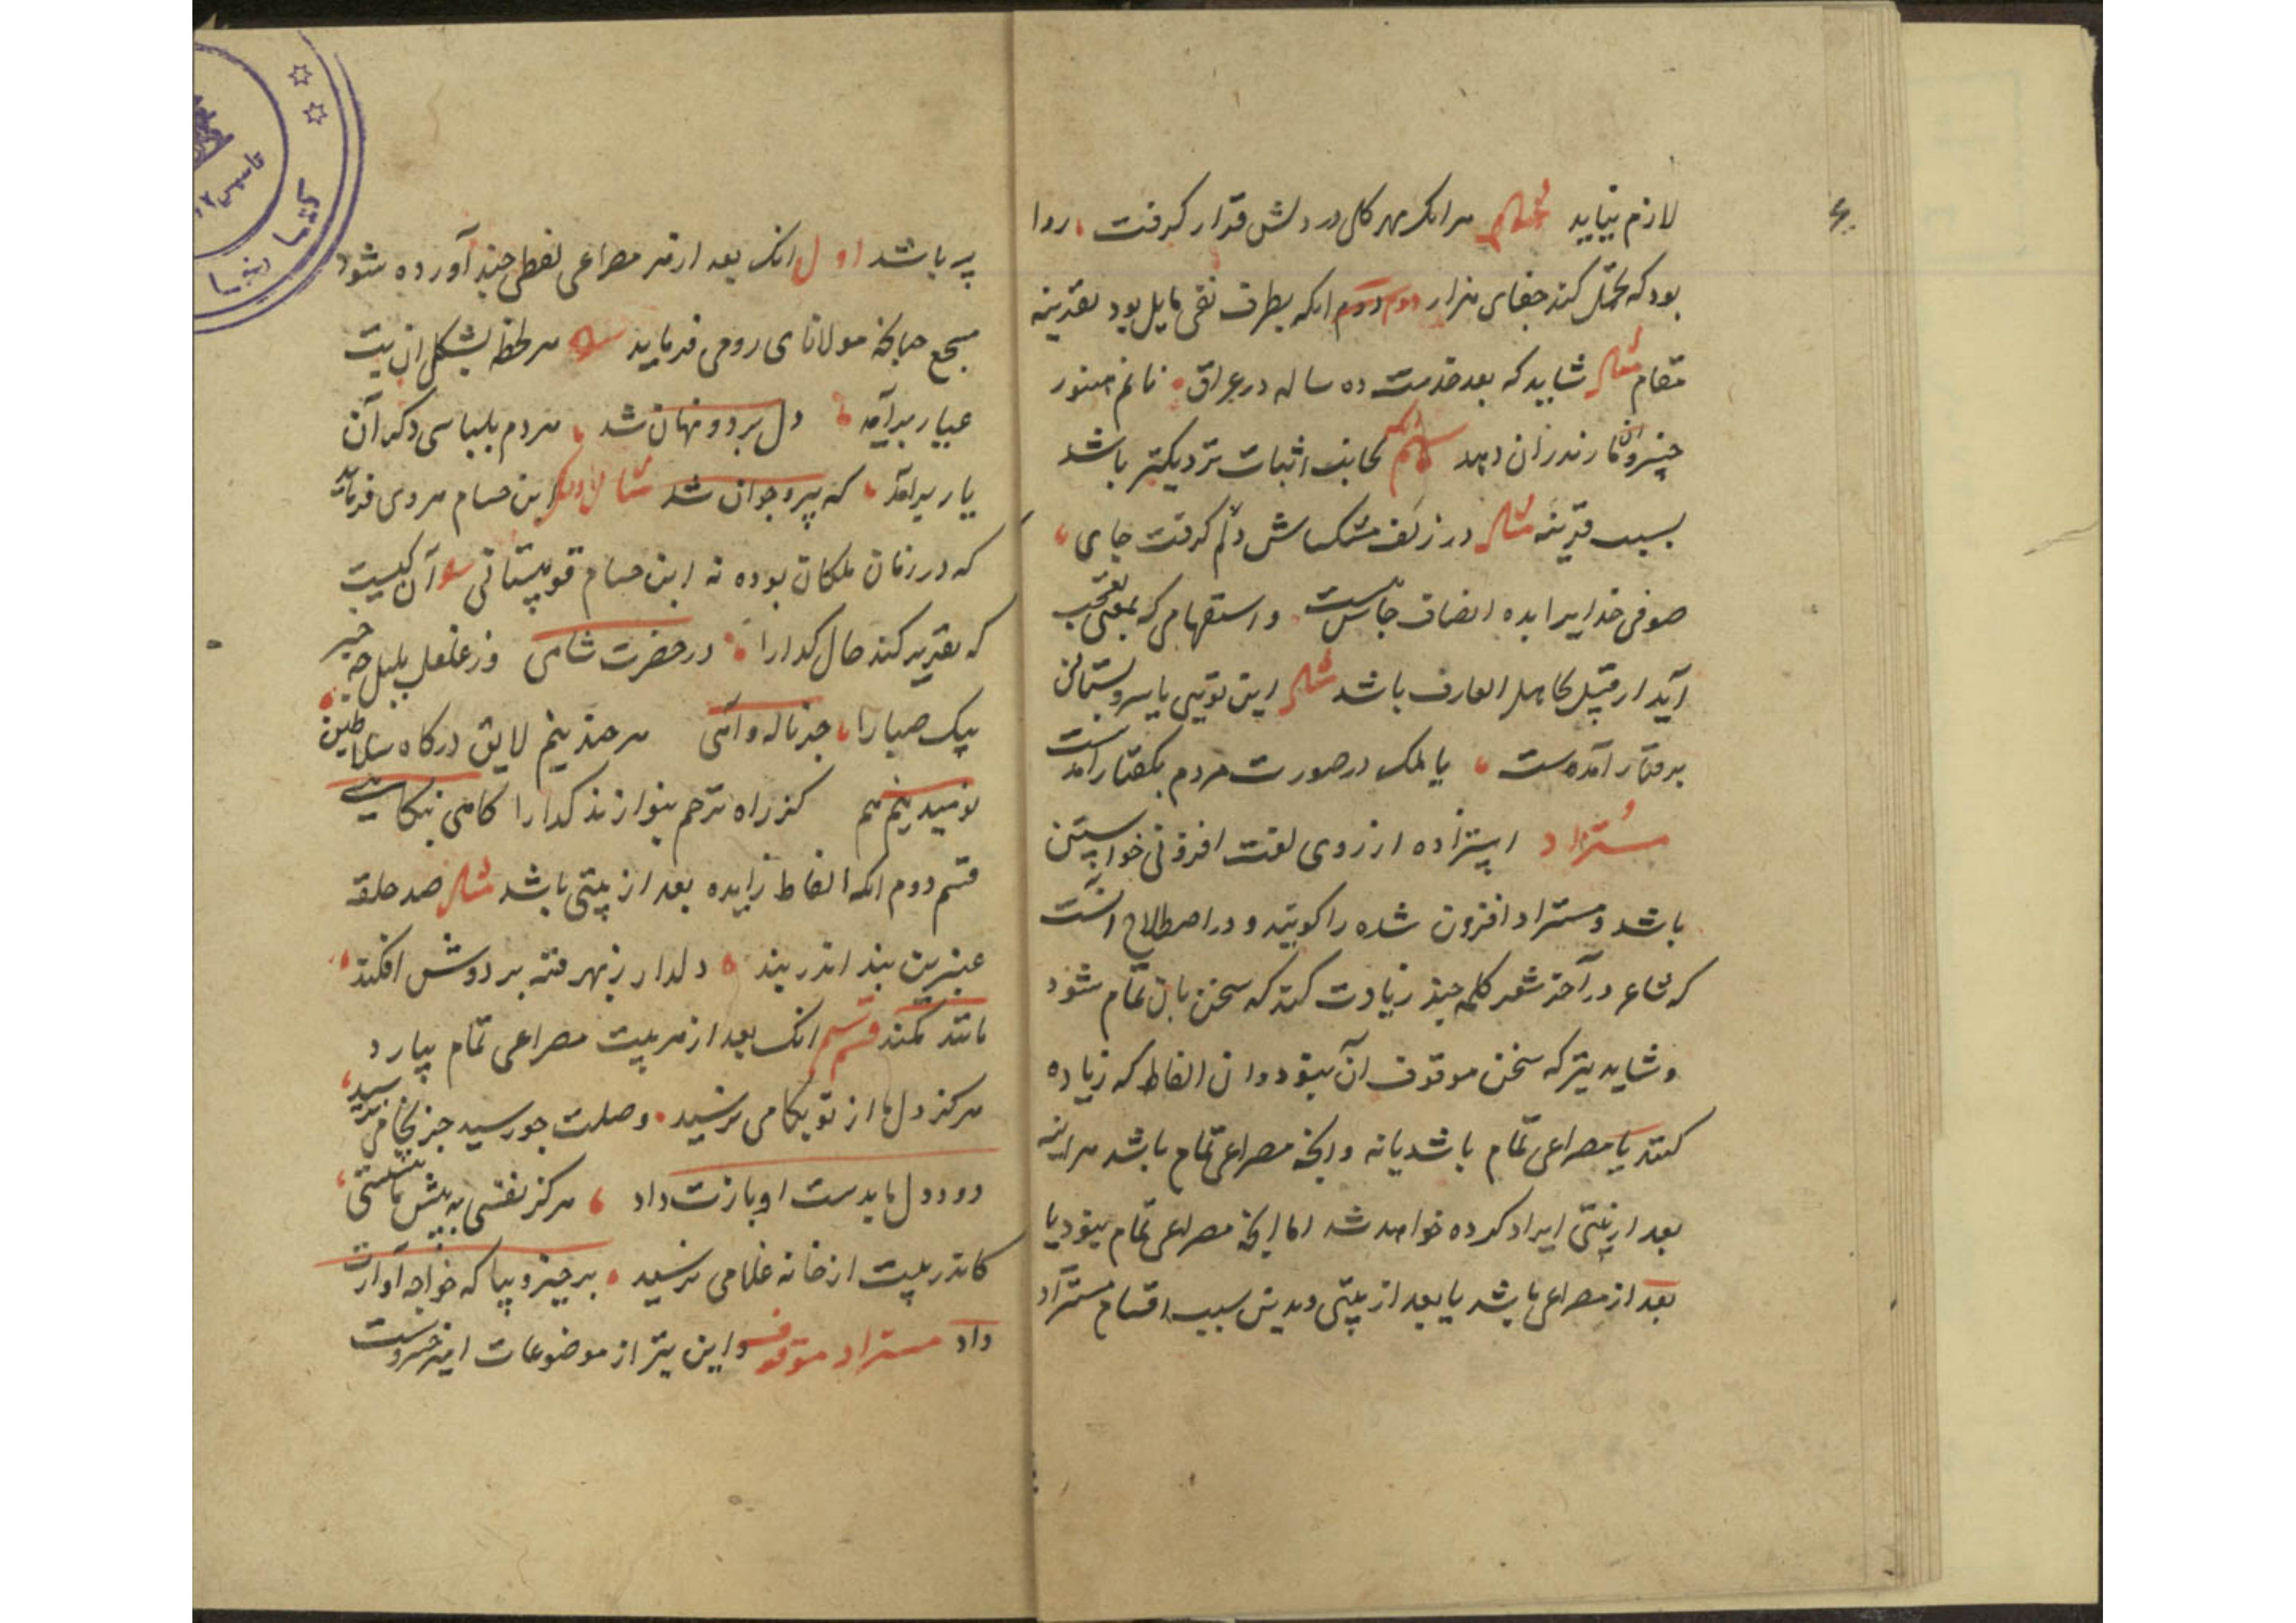 لازم نیاید مثال هرانک مهر کلی در دلش قرار گرفت روا
بود که تحمل کند جفای هزار دوم انکه بطرف نفی مایل بود بقرینه
مقام مثال شاید که بعد خدمت ده ساله در عراق نانم هنوز
خسرو مازندران دهد سیم انکه بجانب اثبات نزدیکتر باشد
بسبب قرینه مثال در زلف مشکساش دلم گرفت جای
صوفی خدایرا بده انصاف جاش هست و استفهامی که بمعنی تعجب
آید از قبیل تجاهل العارف باشد مثال این تویی یا سرو بستانی
برفتار آمدست یا ملک در صورت مردم بگفتار آمدست
مستزاد استزاده از روی لغت افزونی خواستن
باشد و مستزاد افزون شده را گویند و در اصطلاح آنست
که شاعر در آخر شعر کلمه چند زیادت کند که سخن بان تمام شود
و شاید نیز که سخن موقوف آن نبود و ان الفاظ که زیاده
کنند یا مصراعی تمام باشد یا نه و انچه مصراعی تمام باشد هراینه
بعد از بیتی ایراد کرده خواهد شد اما انچه مصراعی تمام نبود یا
بعد از مصراعی باشد یا بعد از بیتی و بدین سبب اقسام مستزاد
باشد اول انک بعد از هر مصراعی لفظی چند آورده شود
مسجع چنانکه مولانای رومی فرماید هر لحظه بشکل ان بت
عیار برآمد دل برد و نهان شد هر دم بلباسی دگر آن
یار برامد که پیر و جوان شد مثال دیگر ابن حسام هروی فرماید
که در زمان ملکان بوده نه ابن حسام قوهستانی آن کیست
که تقریر کند حال گدا را در حضرت شاهی وز غلغل بلبل چه خبر
پیک صبا را جز ناله و آهی هر چند نیم لایق درگاه سلاطین
نومید نیم هم کز راه ترحم بنوازند گدا را گاهی بنگاهی
قسم دوم انکه الفاظ زایده بعد از بیتی باشد مثال صد حلقه
عنبرین بند اندر بند دلدار زبهر فتنه بر دوش افکند
مانند کمند قسم سیم انک بعد از هر بیت مصراعی تمام بیارد
هرگز دل ما از تو بکامی نرسید وصلت جو رسید جز بخامی نرسید
دو دو دل ما بدست او بازت داد هرگز نفسی به پیش ما ننشستی
کاندر پیت از خانه غلامی نرسید برخیز و بیا که خواجه آوازت
داد مستزاد موقوف و این نیز از موضوعات امیر خسروست